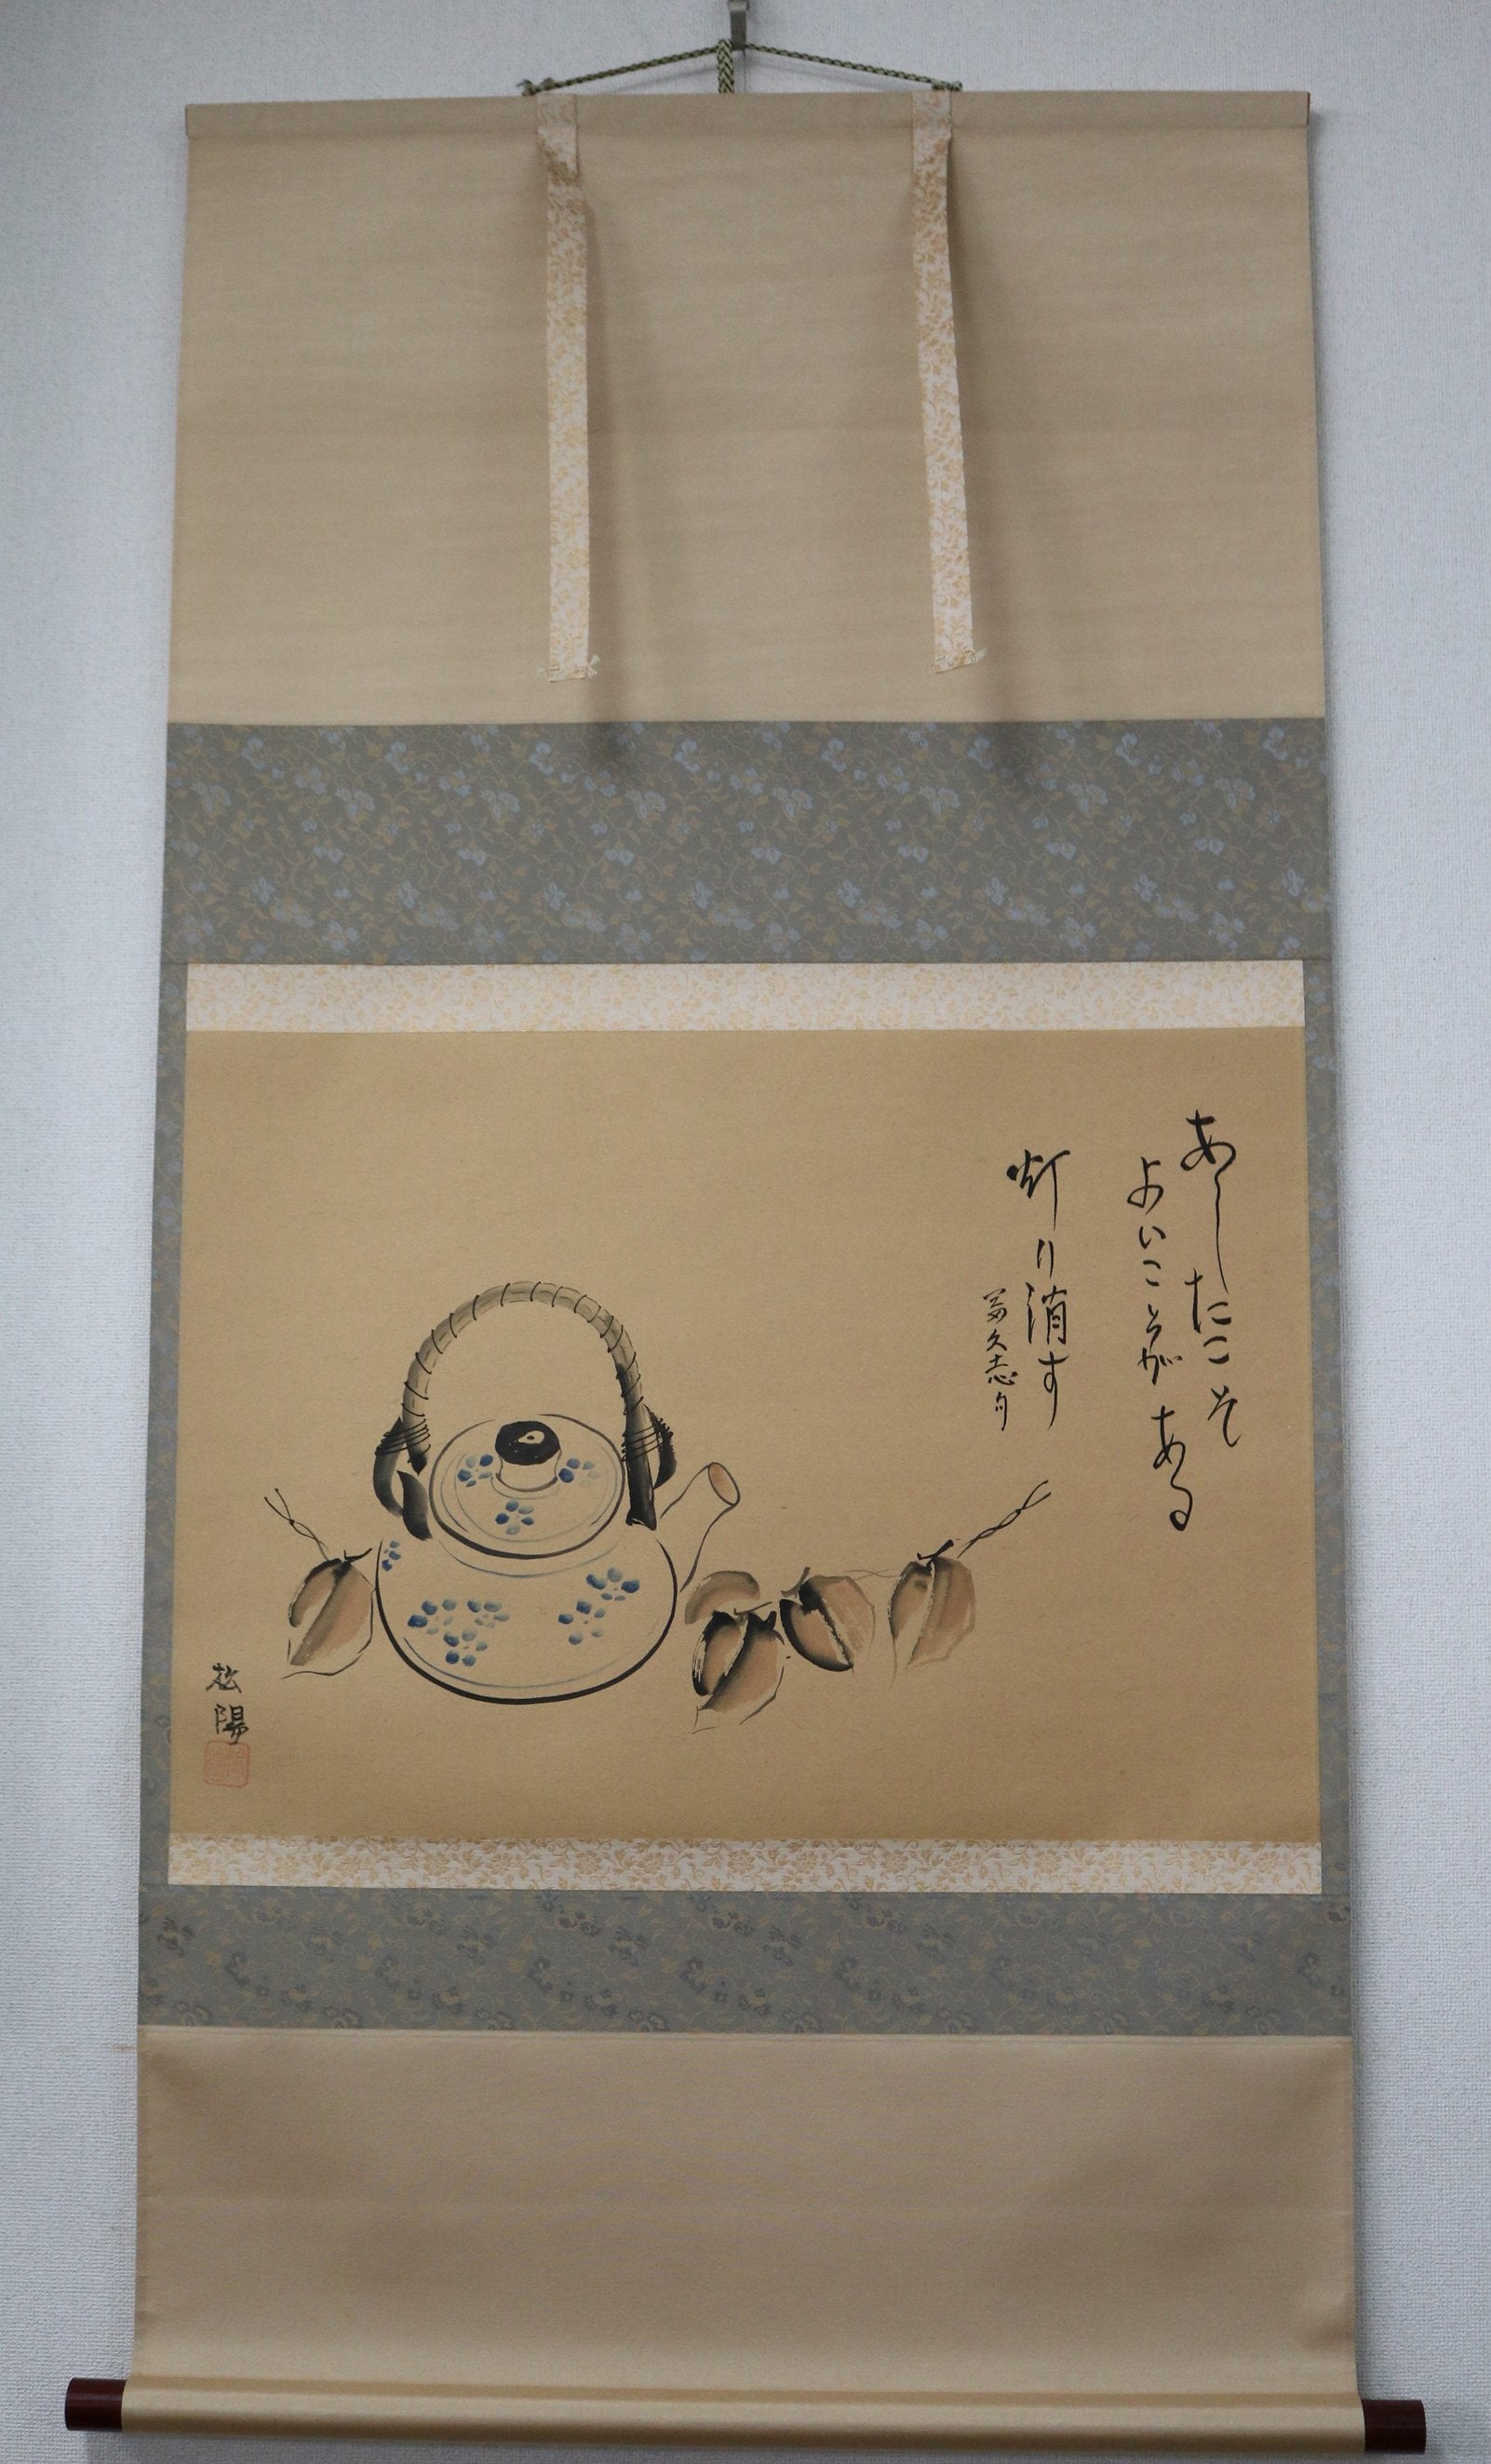 あしたこそ
よいことがある
灯り消す
富久志句
松陽